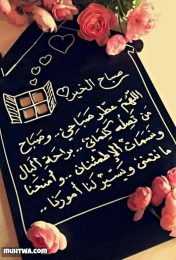 صباح الخير
اللهم عطر صباحي.. وصباح
من تصله كلماتي... براحة البال
ونسمات الإطمئنان.. وامنحنا
ما نتمنى ويسر لنا أمورنا..
MUHTWA.COM